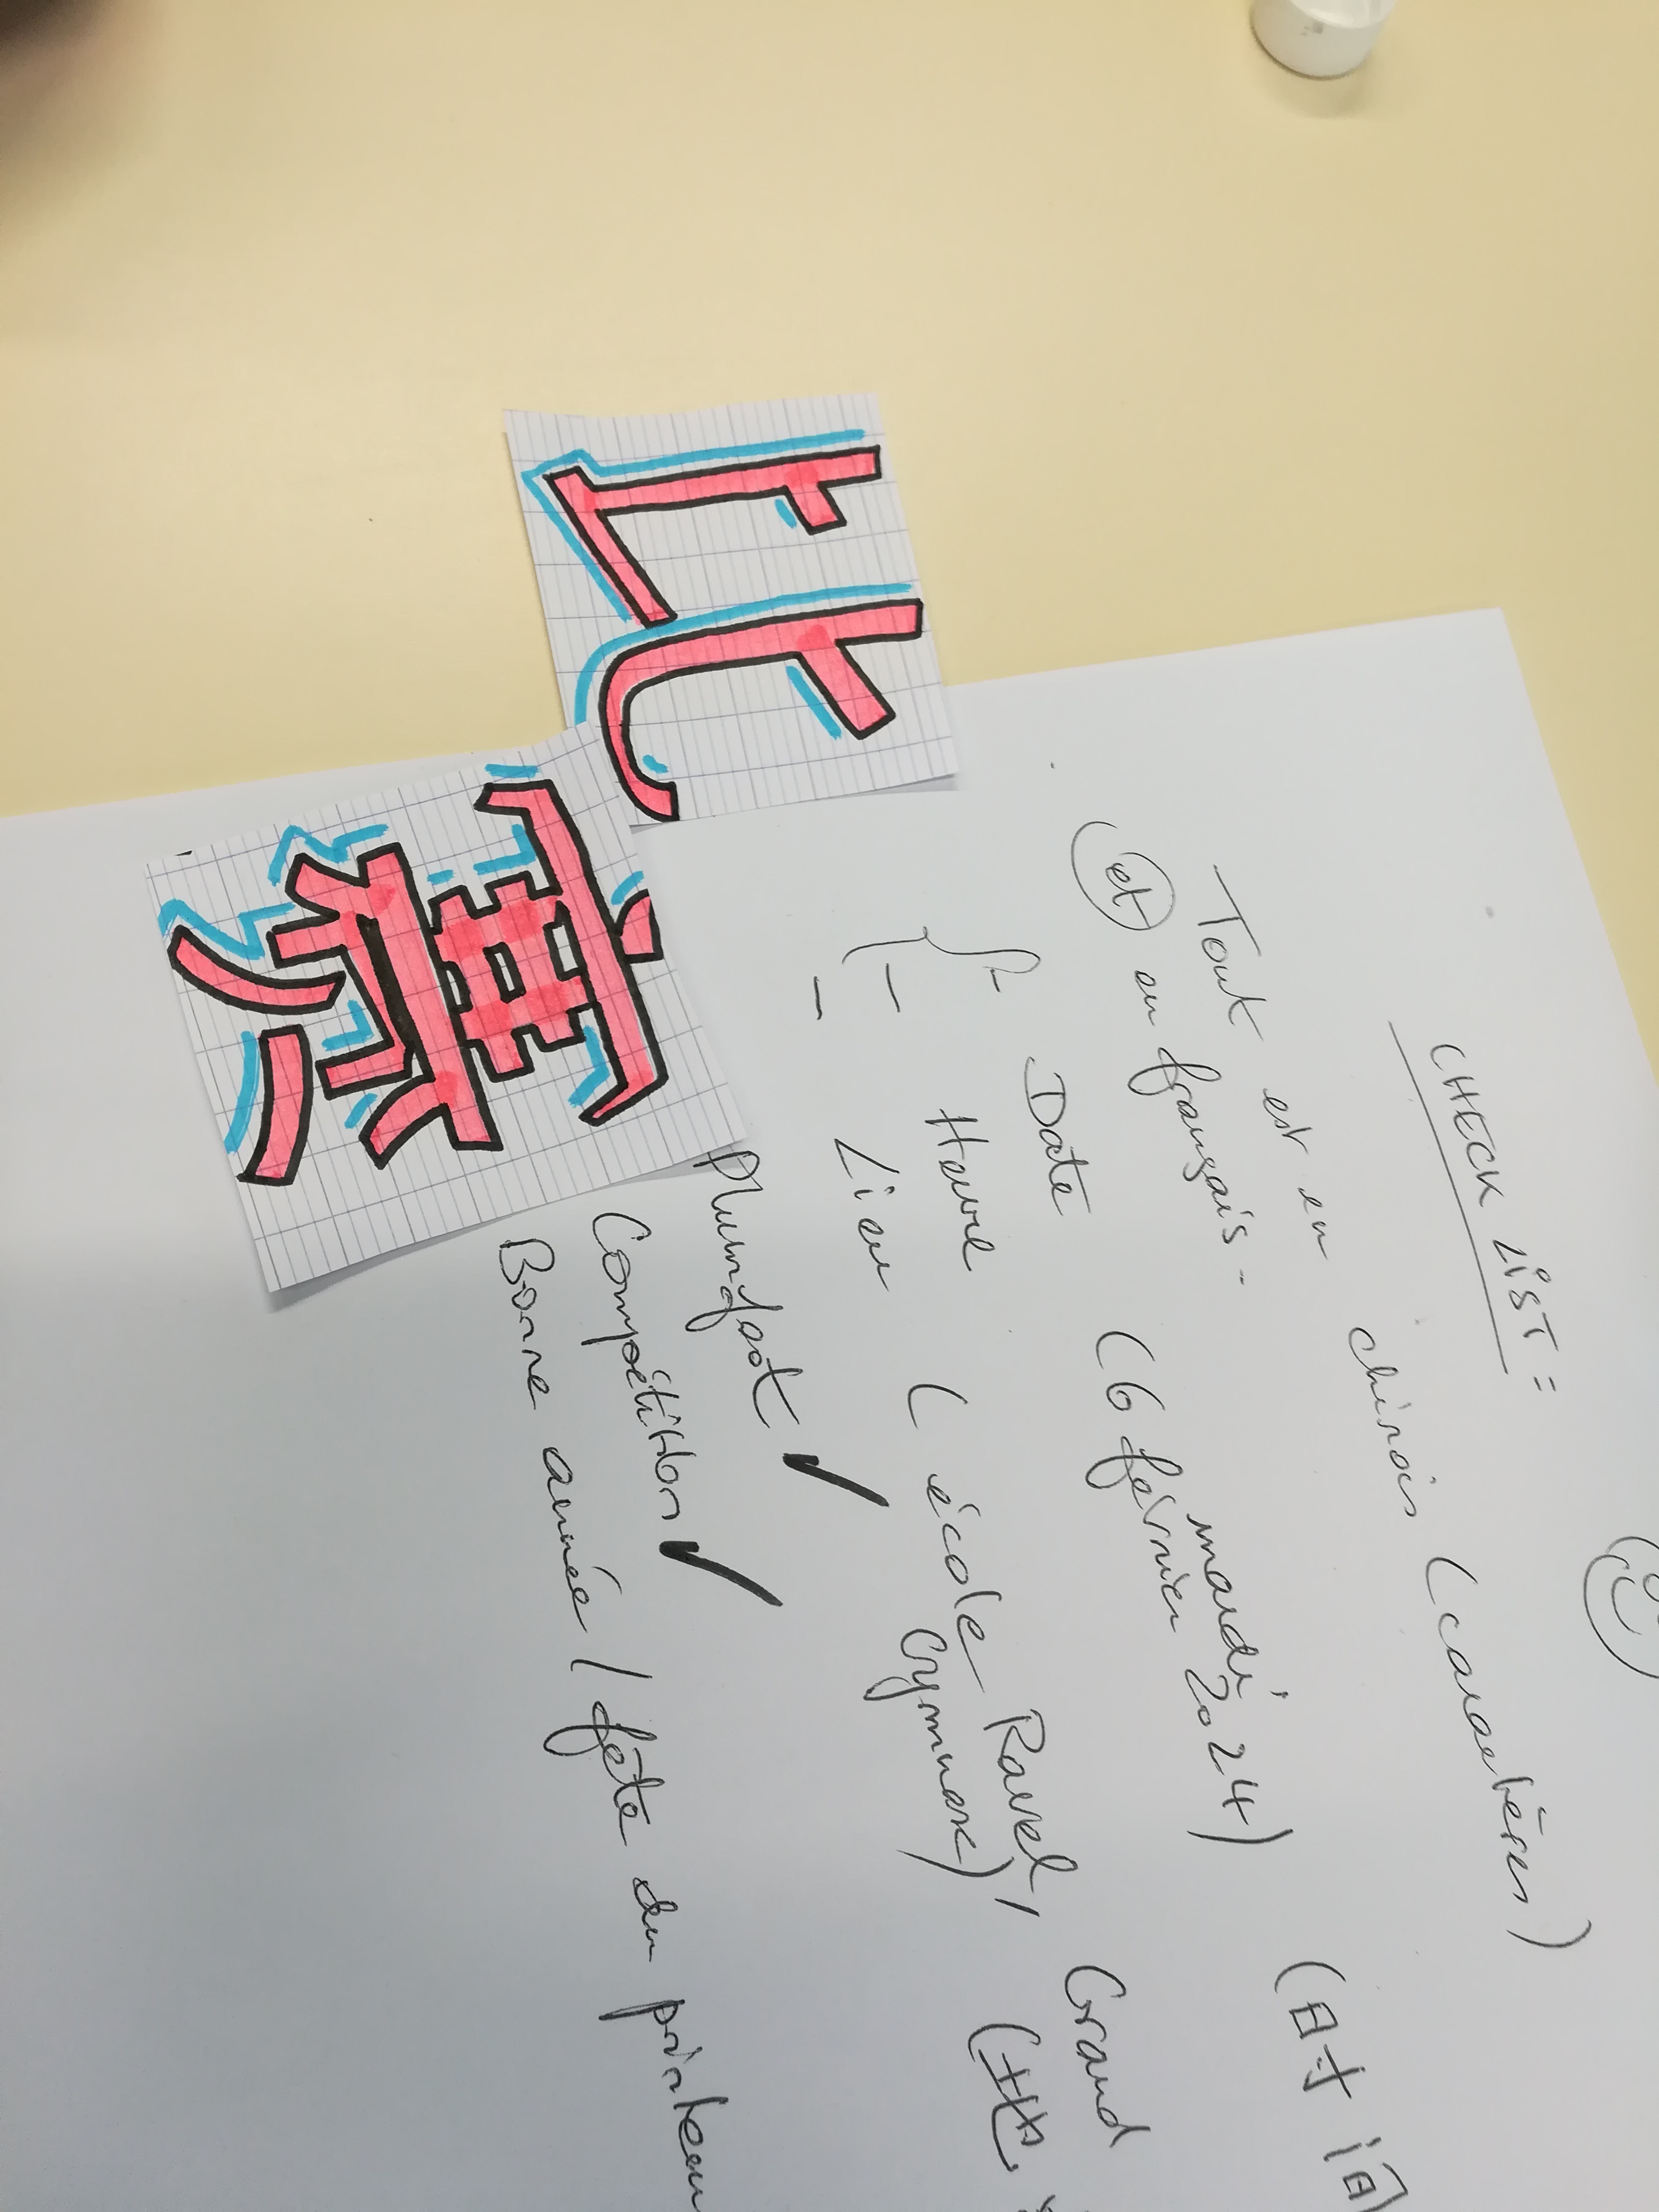 比赛
CHECK LIST :
Tout est en chinois (caractères)
et en français.
- Date (mardi 6 février 2024) (时间)
- Heure
- Lieu (école Ravel, Grand
Gymnase) (地
Plumfoot ✓
Compétition ✓
Bonne année / fête du printem